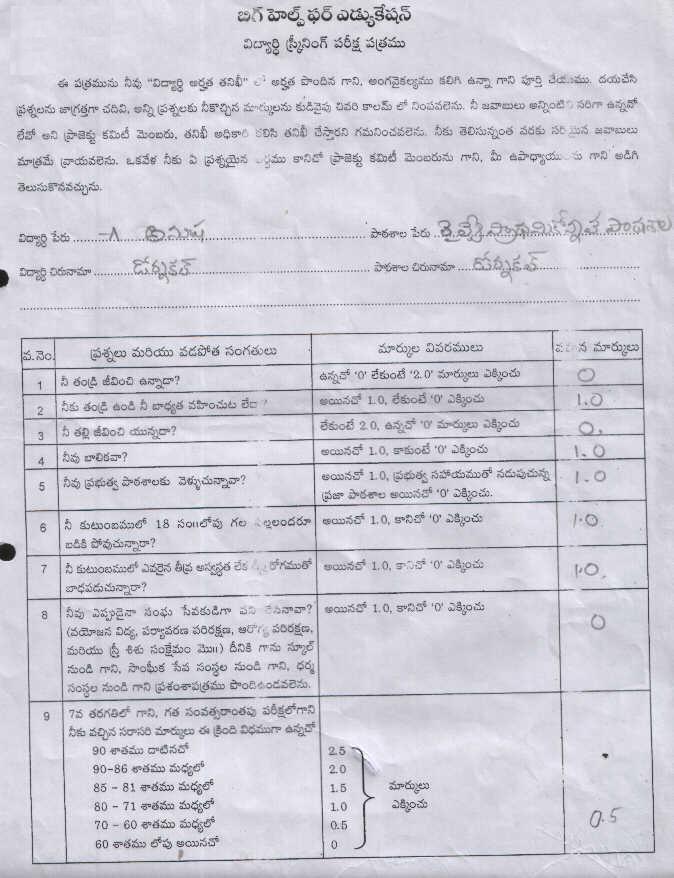 బిగ్ హెల్ప్ ఫర్ ఎడ్యుకేషన్
విద్యార్థి స్క్రీనింగ్ పరీక్ష పత్రము
ఈ పత్రమును నీవు "విద్యార్థి అర్హత తనిఖీ" లో అర్హత పొందిన గాని, అంగవైకల్యము కలిగి ఉన్నా గాని పూర్తి చేయుము. దయచేసి
ప్రశ్నలను జాగ్రత్తగా చదివి, అన్ని ప్రశ్నలకు నీకొచ్చిన మార్కులను కుడివైపు చివరి కాలమ్ లో నింపవలెను. నీ జవాబులు అన్నింటిని సరిగా ఉన్నవో
లేవో అని ప్రాజెక్టు కమిటీ మెంబరు, తనిఖీ అధికారి కలిసి తనిఖీ చేస్తారని గమనించవలెను. నీకు తెలిసున్నంత వరకు సరియైన జవాబులు
మాత్రమే వ్రాయవలెను. ఒకవేళ నీకు ఏ ప్రశ్నయైన అర్థము కానిచో ప్రాజెక్టు కమిటీ మెంబరును గాని, మీ ఉపాధ్యాయులను గాని అడిగి
తెలుసుకొనవచ్చును.
విద్యార్థి పేరు పాఠశాల పేరు
విద్యార్థి చిరునామా డోర్నకల్ పాఠశాల చిరునామా డోర్నకల్
వ.నెం. ప్రశ్నలు మరియు వడపోత సంగతులు మార్కుల వివరములు మార్కులు
1 నీ తండ్రి జీవించి ఉన్నాడా? ఉన్నచో '0' లేకుంటే '2.0' మార్కులు ఎక్కించు 0
2 నీకు తండ్రి ఉండి నీ బాధ్యత వహించుట లేదా? అయినచో 1.0, లేకుంటే '0' ఎక్కించు 1.0
3 నీ తల్లి జీవించి యున్నదా? లేకుంటే 2.0, ఉన్నచో '0' మార్కులు ఎక్కించు 0.
4 నీవు బాలికవా? అయినచో 1.0, కాకుంటే '0' ఎక్కించు 1.0
5 నీవు ప్రభుత్వ పాఠశాలకు వెళ్ళుచున్నావా? అయినచో 1.0, ప్రభుత్వ సహాయముతో నడుపుచున్న 1.0
ప్రజా పాఠశాల అయినచో '0' ఎక్కించు.
6 నీ కుటుంబములో 18 సం॥లోపు గల పిల్లలందరూ అయినచో 1.0, కానిచో '0' ఎక్కించు 1.0
బడికి పోవుచున్నారా?
7 నీ కుటుంబములో ఎవరైన తీవ్ర అస్వస్థత లేక రోగముతో అయినచో 1.0, కానిచో '0' ఎక్కించు 1.0.
బాధపడుచున్నారా?
8 నీవు ఎప్పుడైనా సంఘ సేవకుడిగా పని చేసినావా? అయినచో 1.0, కానిచో '0' ఎక్కించు 0
(వయోజన విద్య, పర్యావరణ పరిరక్షణ, ఆరోగ్య పరిరక్షణ,
మరియు స్త్రీ శిశు సంక్షేమం మొ॥) దీనికి గాను స్కూల్
నుండి గాని, సాంఘీక సేవ సంస్థల నుండి గాని, ధర్మ
సంస్థల నుండి గాని ప్రశంశాపత్రము పొందిఉండవలెను.
9 7వ తరగతిలో గాని, గత సంవత్సరాంతపు పరీక్షలోగాని
నీకు వచ్చిన సరాసరి మార్కులు ఈ క్రింది విధముగా ఉన్నచో
90 శాతము దాటినచో 2.5
90-86 శాతము మధ్యలో 2.0
85 - 81 శాతము మధ్యలో 1.5 మార్కులు
80 - 71 శాతము మధ్యలో 1.0 ఎక్కించు
70 - 60 శాతము మధ్యలో 0.5 0.5
60 శాతము లోపు అయినచో 0